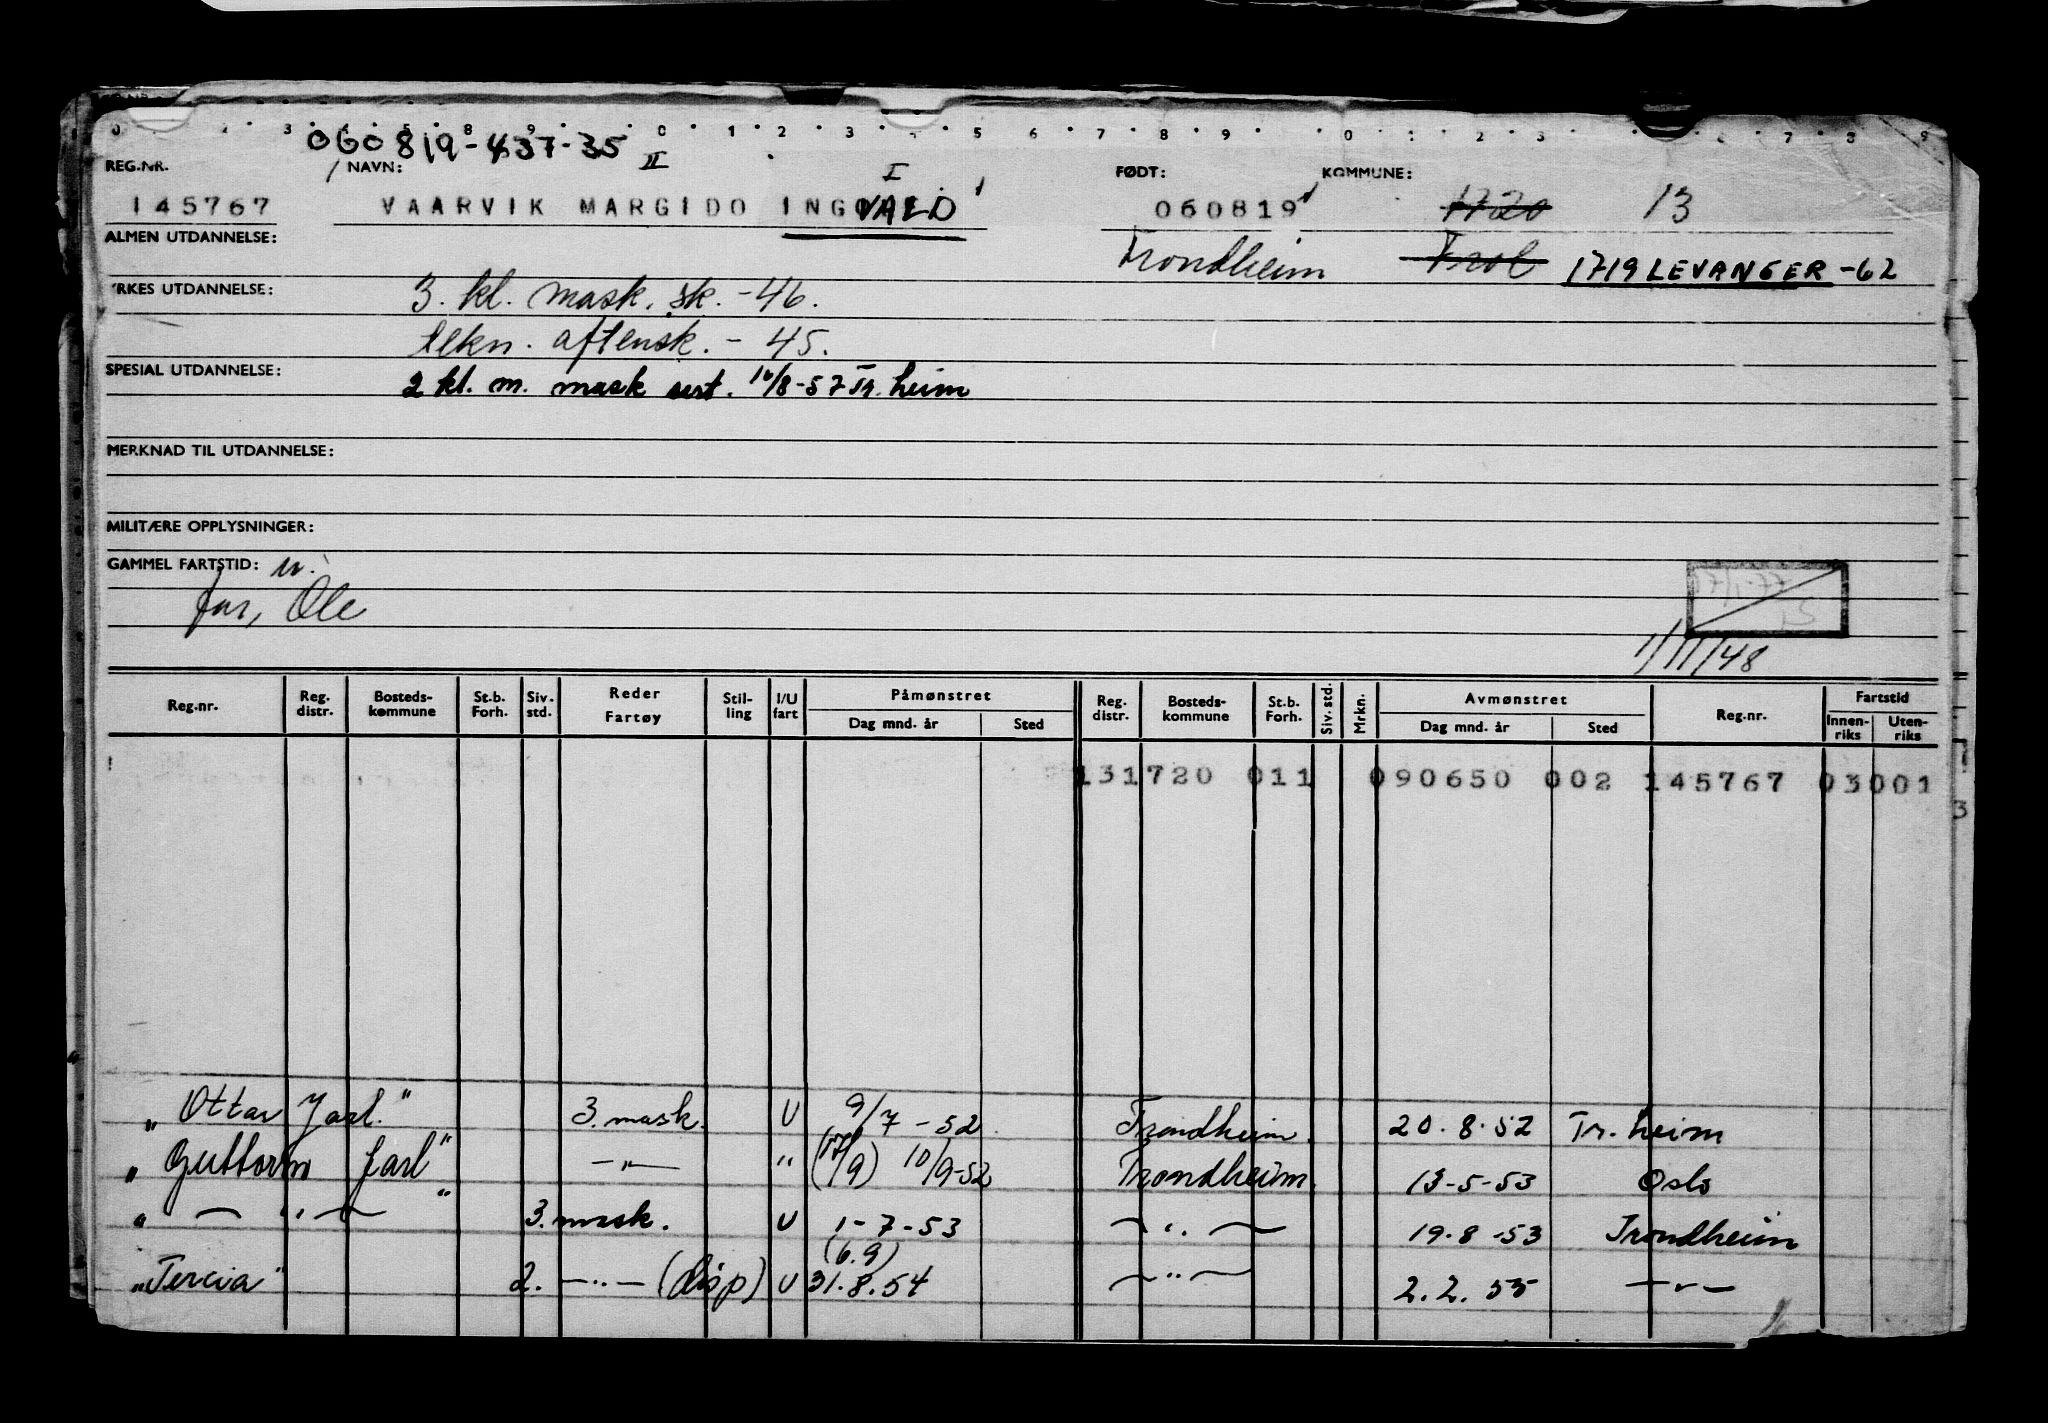 0 2 3 4 5 8 9 0 1 2 3 5 6 7 8 9 0 1 2 3 6 7 8 9
060819-437-35
REG.NR. NAVN: II I FØDT: KOMMUNE:
145767 VAARVIK MARGIDO INGOVALD 060819 1720 13
ALMEN UTDANNELSE: Trondheim Frol 1719 LEVANGER -62
YRKES UTDANNELSE: 3. kl. mask. sk. -46.
tekn. aftensk. - 45.
SPESIAL UTDANNELSE: 2 kl. m. mask sert. 16/8-57 Tr.heim
MERKNAD TIL UTDANNELSE:
MILITÆRE OPPLYSNINGER:
GAMMEL FARTSTID: u.
far, Ole
1/11/48
Reg.nr. Reg. distr. Bosteds-kommune St.b. Forh. Siv. std. Reder Fartøy Stil-ling I/U fart Påmønstret Dag mnd. år Sted Reg. distr. Bosteds-kommune St.b. Forh. Siv. std. Mrkn. Avmønstret Dag mnd. år Sted Reg.nr. Fartstid Innen-riks Uten-riks
131720 011 090650 002 145767 03001
3
„Ottar Jarl." 3. mask. U 9/7 - 52 Trondheim. 20.8.52 Tr.heim
„Guttorm Jarl" —„— " (17/9) 10/9-52 Trondheim. 13-5-53 Oslo
„ — „ — " 3. mask. U 1-7-53 — „ — 19.8-53 Trondheim
(6.9)
„Tercia" 2. —„— (disp) U 31.8.54 — „ — 2.2.55 —„—